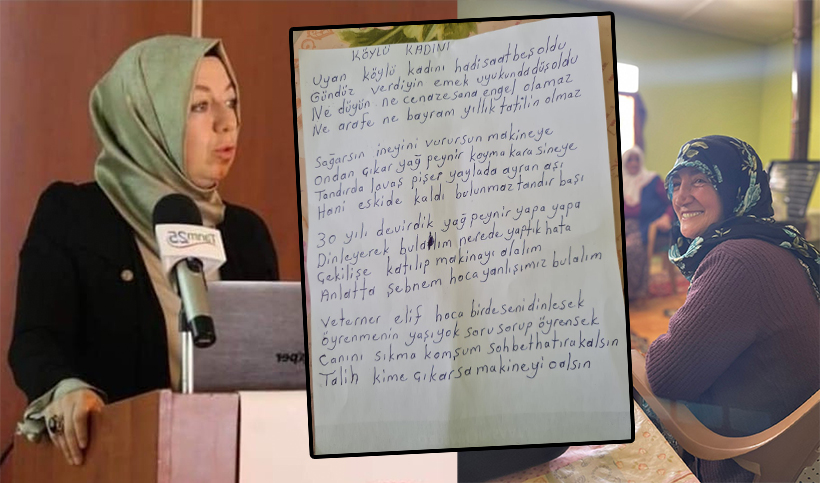 KÖYLÜ KADINI
Uyan köylü kadını hadi saat beş oldu
Gündüz verdiyin emek uyukunda düş oldu
Ne düyün ne cenaze sana engel olamaz
Ne arafe ne bayram yıllık tatilin olmaz
Sağarsın ineyini vurursun makineye
Ondan çıkar yağ peynir koyma kara sineye
Tandırda lavaş pişer yaylada ayran aşı
Hani eskide kaldı bulunmaz tandır başı
30 yılı devirdik yağ peynir yapa yapa
Dinleyerek bulalım nerede yaptık hata
Çekilişe katılıp makinayı alalım
Anlatta şebnem hoca yanlışımız bulalım
Veterner elif hoca birde seni dinlesek
öyrenmenin yaşı yok soru sorup öyrensek
Canını sıkma komşum sohbet hatıra kalsın
Talih kime çıkarsa makineyi oalsın
TARIM25